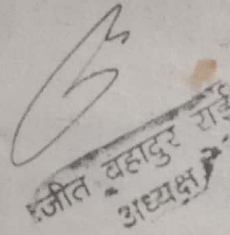 जीत वहादुर राई
अध्यक्ष